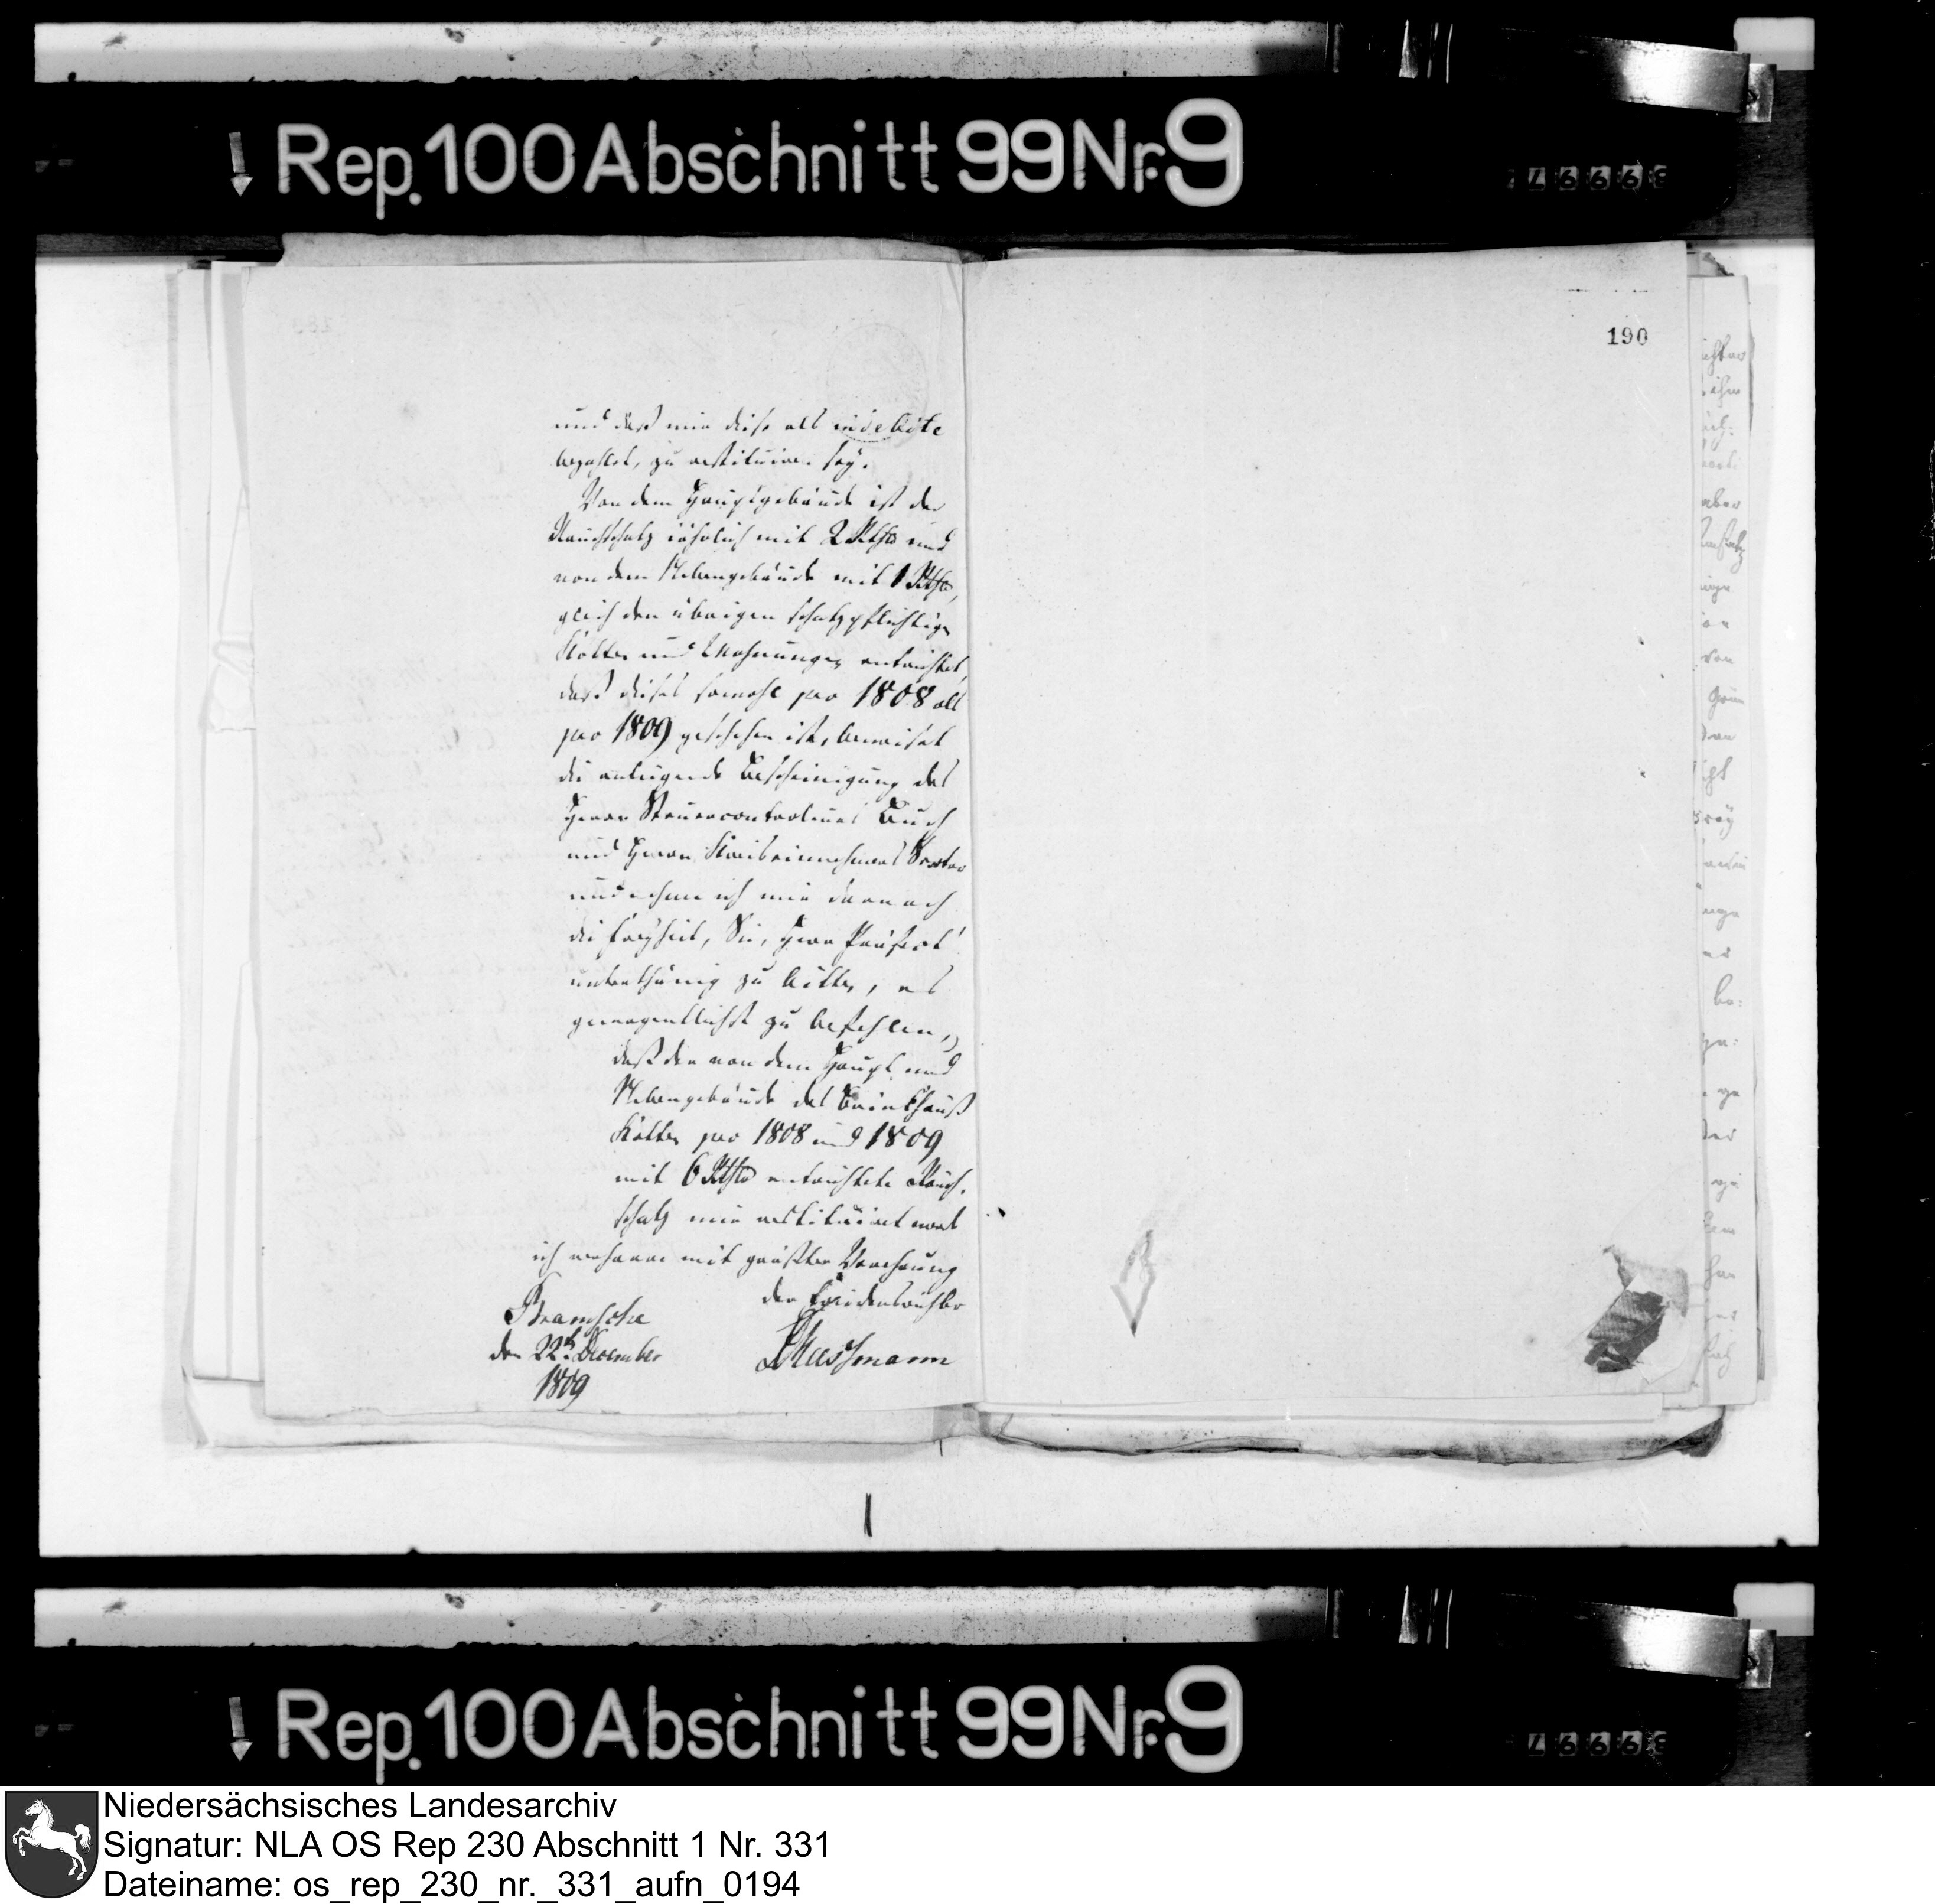 Rep. 100 Abschnitt 99 Nr. 9
190
und daß mir diese als indebite
bezahlet, zu restituiren sey.
Von dem Hauptgebäude ist der
Rauchschatz jährlich mit 2 Rthlr und
von dem Nebengebäude mit 1 Rthlr,
gleich den übrigen schatzpflichtigen
Kotten und Wohnungen entrichtet,
daß dieses sowohl pro 1808 als
pro 1809 geschehen ist, beweiset
die anliegende Bescheinigung des
Herrn Steuercontroleurs Buch
und Herrn Kreiseinnehmers
und nehme ich mir darnach
die Freyheit, Sie, Herr Präfect!
unterthänig zu bitten, es
hochgeneigtest zu befehlen,
daß der von dem Haupt und
Nebengebäude des Brinkhauß
Kotten pro 1808 und 1809
mit 6 Rthlr entrichtete Rauch-
schatz mir restituiret werde
ich verharre mit größter Verehrung
der Friedensrichter
Bramsche
den 22ten December
1809
Rep. 100 Abschnitt 99 Nr. 9
Niedersächsisches Landesarchiv
Signatur: NLA OS Rep 230 Abschnitt 1 Nr. 331
Dateiname: os_rep_230_nr._331_aufn_0194